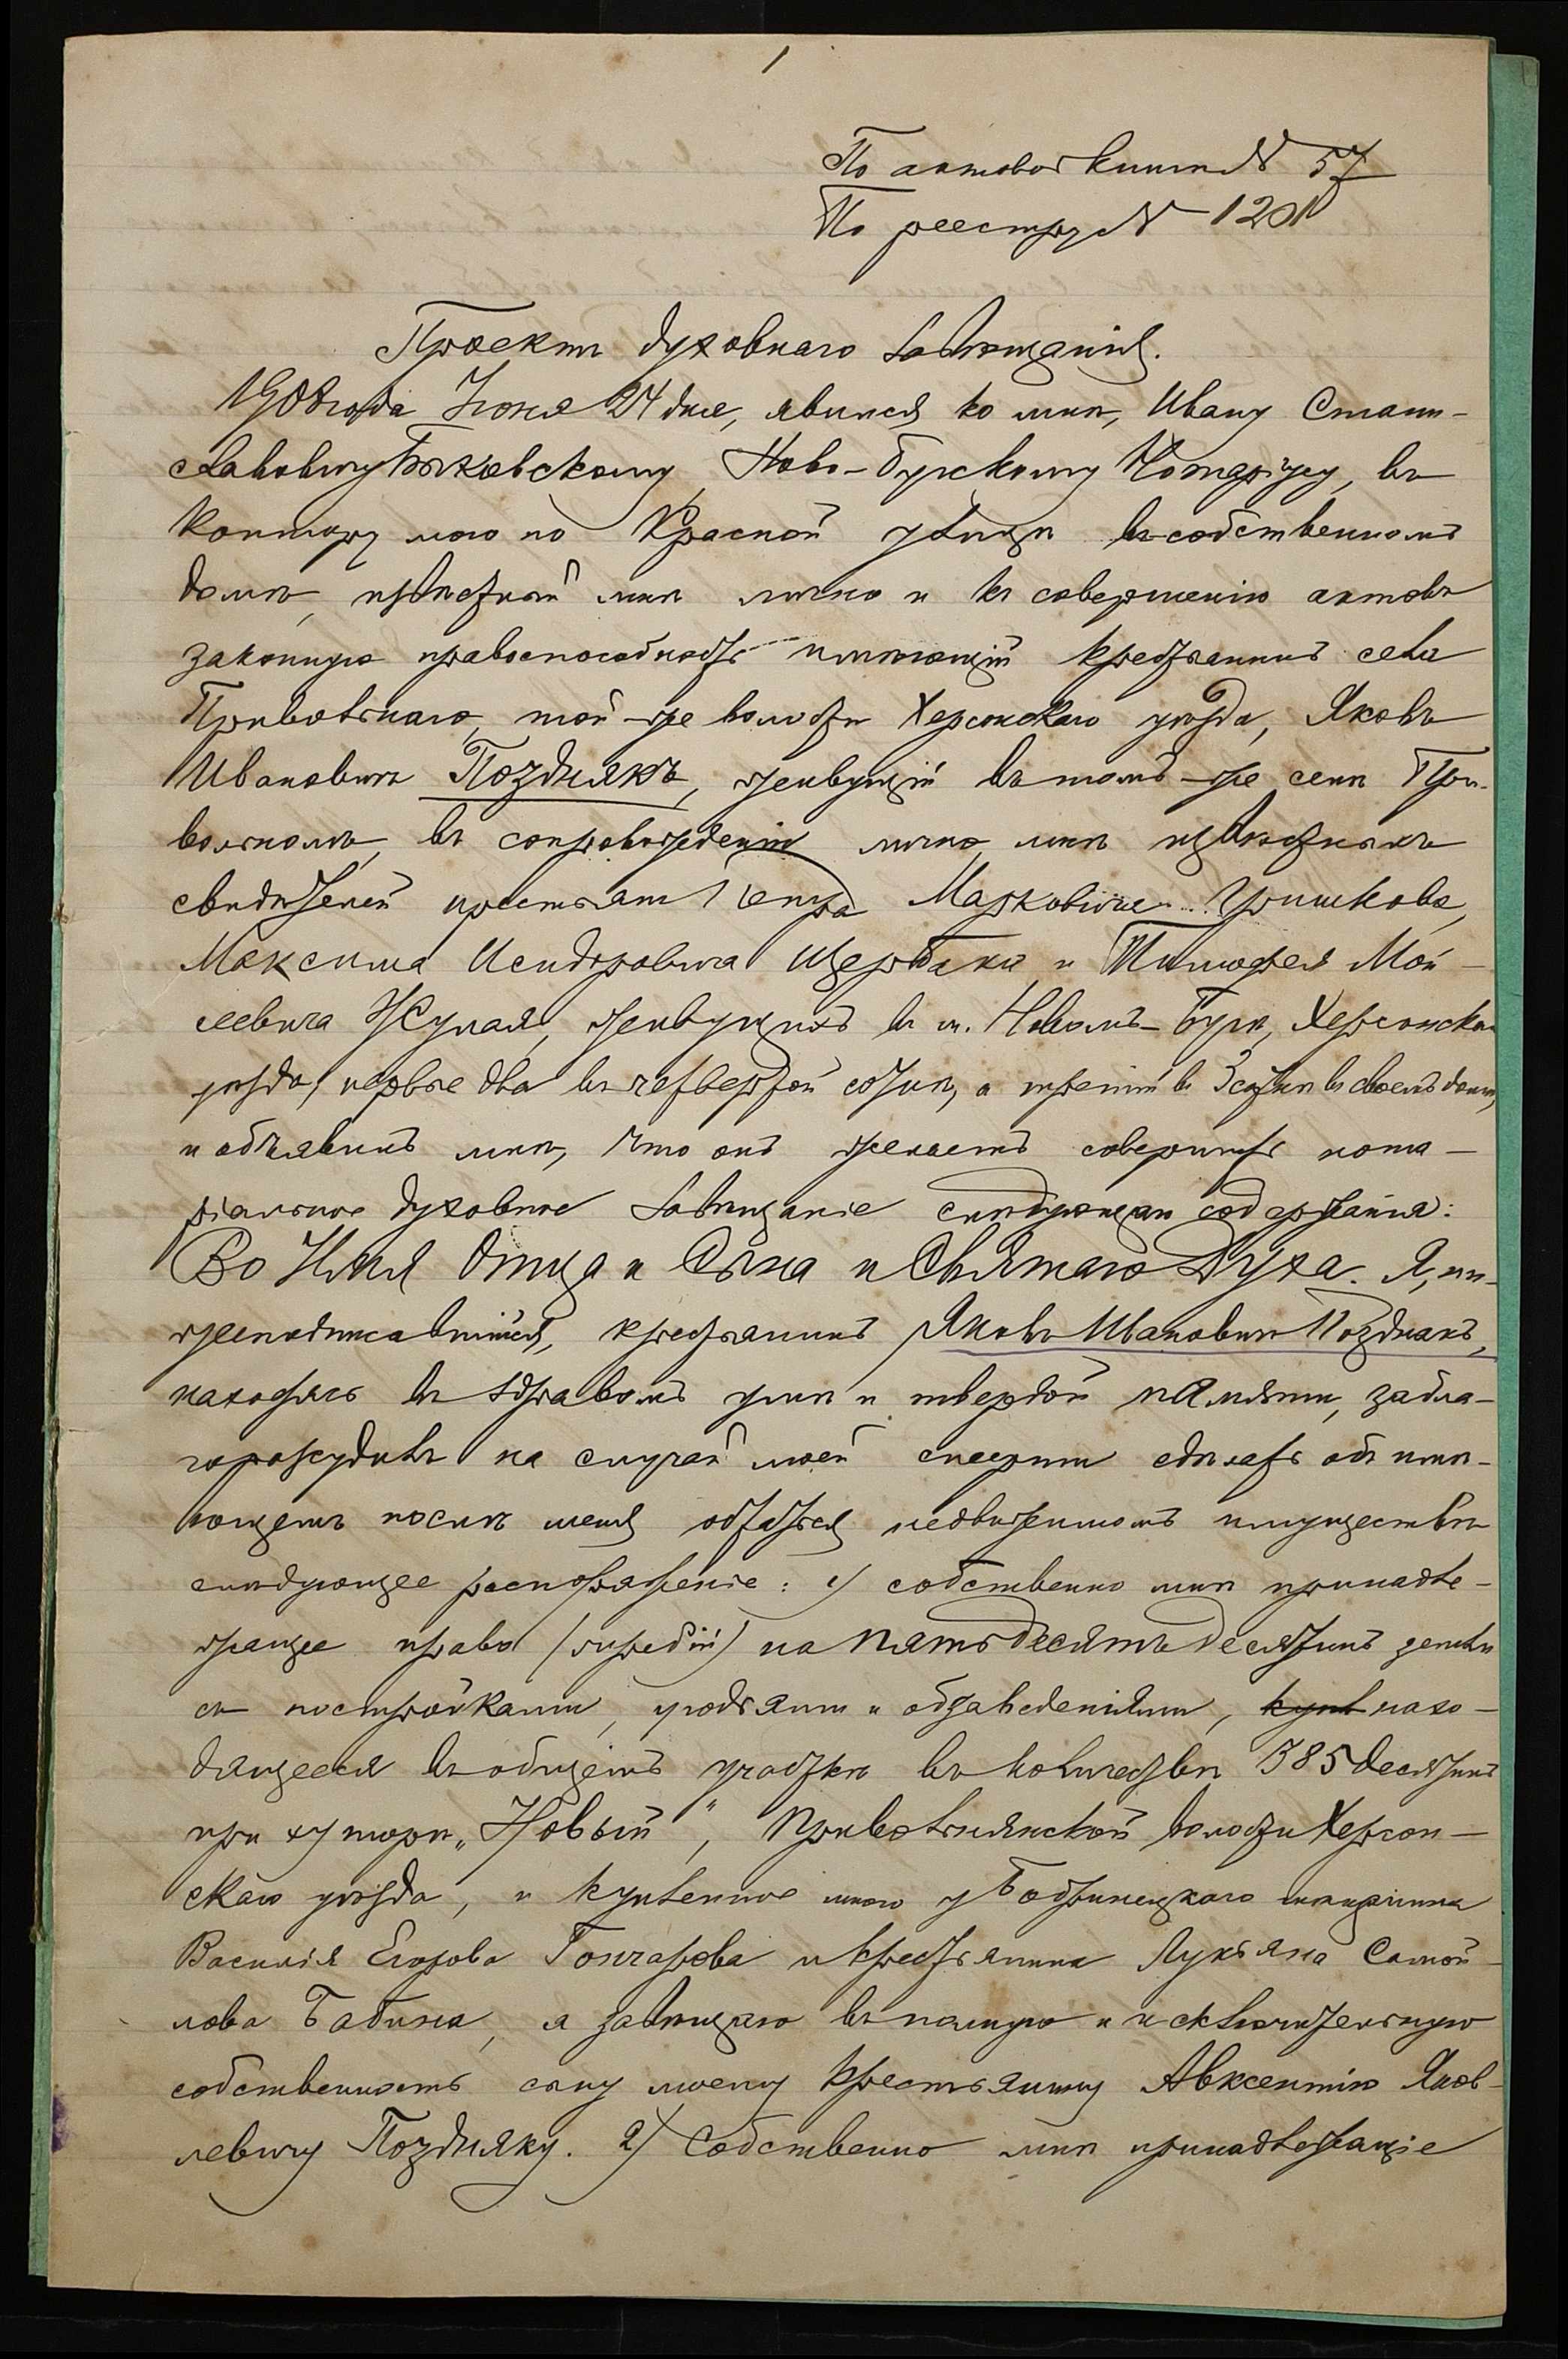 1
По актовой книгѣ № 57
По реестру № 1201
Проектъ духовнаго завѣщанія.
1908 года Іюня 24 дня, явился ко мнѣ, Ивану Стани-
славовичу Быховскому, Ново-бугскому Нотаріусу, въ
контору мою по Красной улицѣ въ собственномъ
домѣ, извѣстный мнѣ лично и къ совершенію актовъ
законную правоспособность имѣющій крестьянинъ села
Привольнаго, той-же волости Херсонскаго уѣзда, Яковъ
Ивановичъ Позднякъ, живущій въ томъ-же селѣ При-
вольномъ, въ сопровожденіи лично мнѣ извѣстныхъ
свидѣтелей крестьянъ Петра Марковича Гришкова,
Максима Исидоровича Щербака и Тимофея Мои-
сеевича Жулая, живущихъ въ м. Новомъ-Бугѣ, Херсонска
уѣзда, первые два въ четвертой сотнѣ, а третій въ 3 сотнѣ въ своемъ домѣ,
и объявилъ мнѣ, что онъ желаетъ совершить нота-
ріальное духовное завѣщаніе слѣдующаго содержанія:
Во Имя Отца и Сына и Святаго Духа. Я, ни-
жеподписавшійся, крестьянинъ Яковъ Ивановичъ Позднякъ,
находясь въ здравомъ умѣ и твердой памяти, забла-
горазсудилъ на случай моей смерти сдѣлать объ имѣ-
ющемъ послѣ меня остаться недвижимомъ имуществѣ
слѣдующее распоряженіе: 1) собственно мнѣ принадле-
жащее право (жребій) на пятьдесятъ десятинъ земли
съ постройками, угодьями и обзаведеніями, купл нахо-
дящееся въ общемъ участкѣ въ количествѣ 385 десятинъ
при хуторѣ „Новый", Привольнянской волости Херсон-
скаго уѣзда, и купленное мною у Бобринецкаго мѣщанина
Василія Егорова Гончарова и крестьянина Лукьяна Самой-
лова Бабина, я завѣщаю въ полную и исключительную
собственность сыну моему крестьянину Авксентію Яков-
левичу Поздняку. 2) Собственно мнѣ принадлежащіе